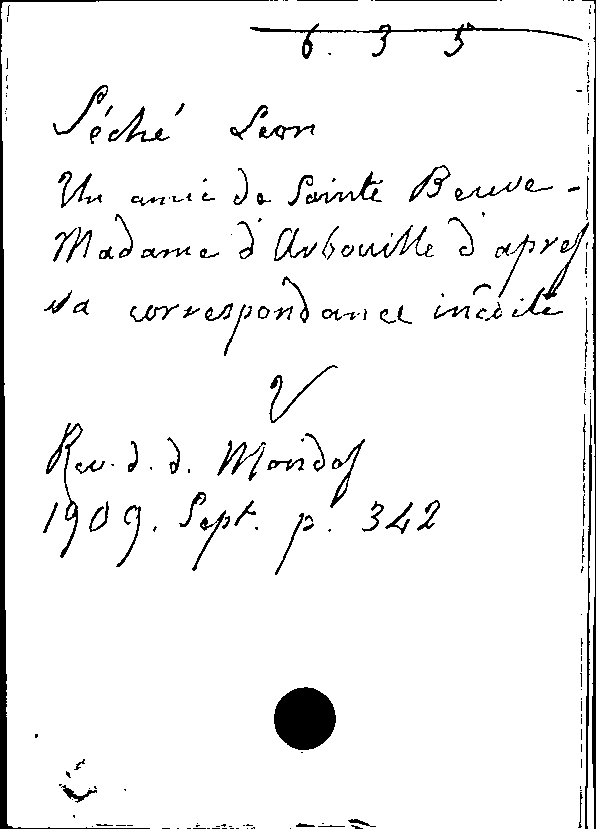 6. 3 5
Séché Leon
Un amie de Sainte Beuve -
Madame d'Arbouville d'apres
sa correspondance inédite
V
Rev. d. d. Mondes
1909. Sept. p. 342